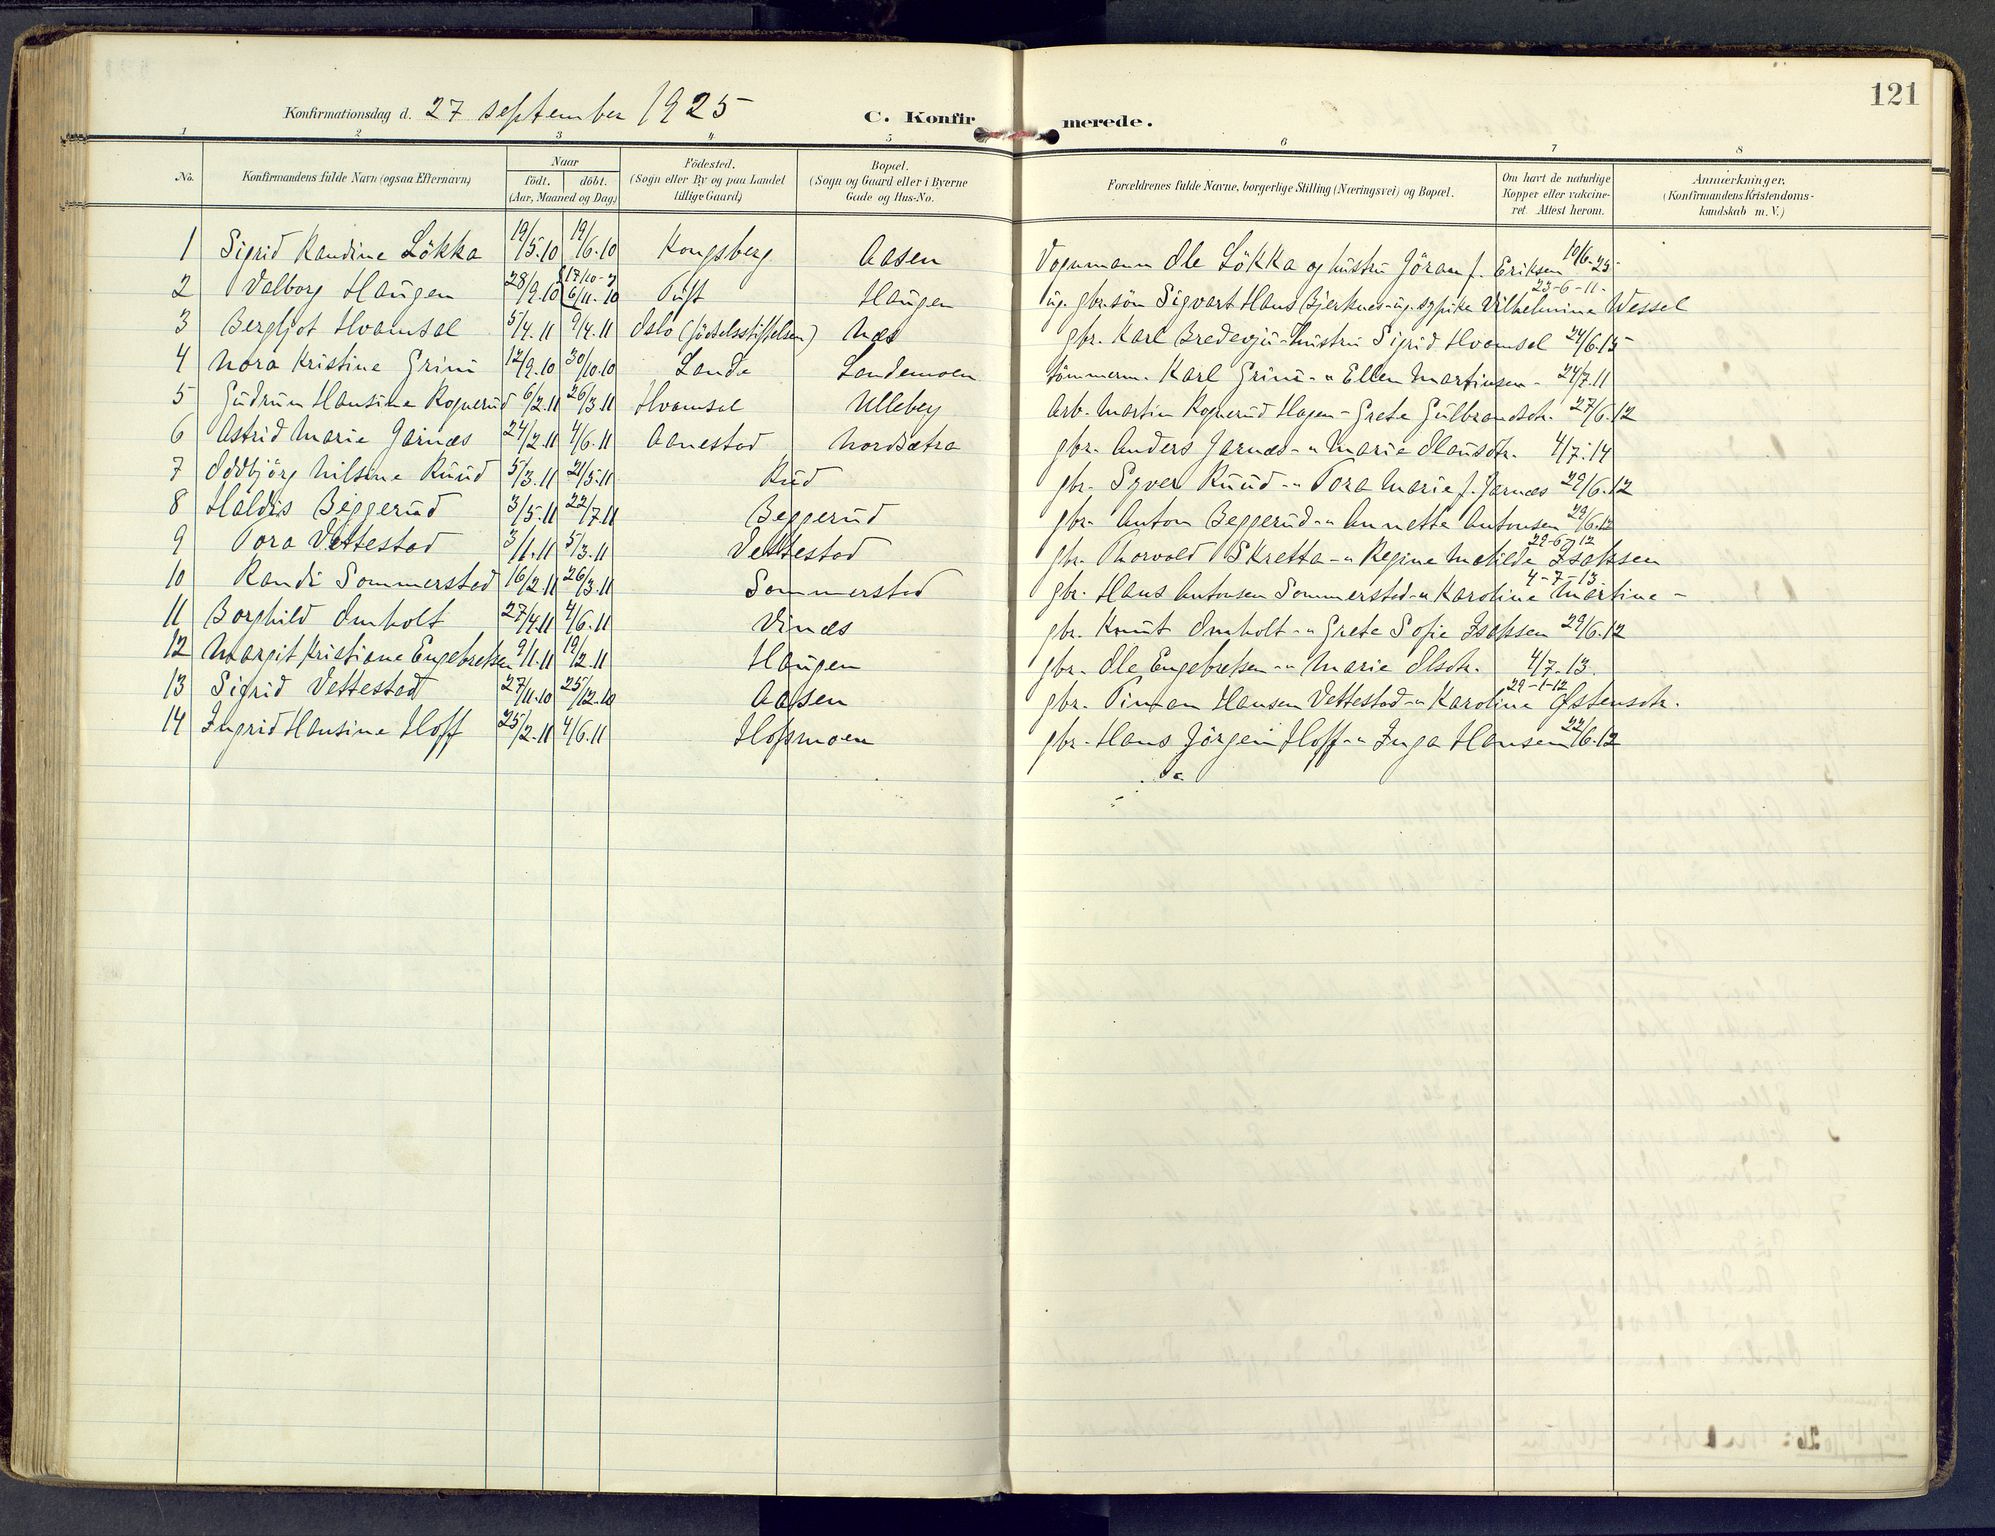 121
Konfirmationsdag d. 27 september 1925 C. Konfirmerede.
1 2 3 4 5 6 7 8
No. Konfirmandens fulde Navn (ogsaa Efternavn) Naar födt. döbt. (Aar, Maaned og Dag) Födested. (Sogn eller By og paa Landet tillige Gaard) Bopæl. (Sogn og Gaard eller i Byerne Gade og Hus-No. Forældrenes fulde Navne, borgerlige Stilling (Næringsvei) og Bopæl. Om havt de naturlige Kopper eller vakcineret. Attest herom. Anmærkninger, (Konfirmandens Kristendomskundskab m. V.)
1 Sigrid Randine Lökka 19/5.10 19/6.10 Kongsberg Aasen Vognmann Ole Lökka og hustru Jöran f. Eriksen 10/6-25
2 Valborg Haugen 28/9.10 17/10-9 6/11.10 Tuft Haugen ug. gbr.sön Sigvart Hans Bjerknes - ug. sypike Vilhelmine Wessel 23-6-11-
3 Bergljot Hvamsel 5/4.11 9/4.11 Oslo (födselsstiftelsen) Næs gbr. Karl Bredevju - Hustru Sigrid Hvamsel 24/6.15
4 Nora Kristine Grini 12/9.10 30/10.10 Lande Landemoen tömmerm. Karl Grini - " Ellen Martinsen - 24/7.11
5 Gudrun Hansine Rognerud 6/2.11 26/3.11 Hvamsel Ulleberg Arb. Martin Rognerud Hagen - Grete Gulbrandsdtr. 27/6.12
6 Astrid Marie Jarnæs 24/2.11 4/6.11 Aanestad Nordsætra gbr. Anders Jarnæs - " Marie Olausdtr. 4/7.14
7 Oddbjörg Nilsine Ruud 5/3.11 21/5.11 Rud gbr. Syver Ruud - " Tora Marie f. Jarnæs 29/6.12
8 Haldis Beggerud 3/5.11 22/7.11 Beggerud gbr. Anton Beggerud - " Annette Antonsen 29/6.12
9 Tora Vettestad 3/1.11 5/3.11 Vettestad gbr. Thorvald Skretta - " Regine Matilde Isaksen 29-6-12
10 Randi Sommerstad 16/2.11 26/3.11 Sommerstad gbr. Hans Antonsen Sommerstad - " Karoline Martine - 4-7-13
11 Borghild Omholt 27/4.11 4/6.11 Vinæs gbr. Knut Omholt - " Grete Sofie Isaksen 29/6.12
12 Margit Kristiane Engebretsen 9/1.11 19/2.11 Haugen gbr. Ole Engebretsen - " Marie Olsdtr. 4/7.13.
13 Sigrid Vettestad 27/11.10 25/12.10 Aasen gbr. Timan Hansen Vettestad - " Karoline Østensdtr. 29-1-12
14 Ingrid Hansine Hoff 25/2.11 4/6.11 Hofsmoen gbr. Hans Jörgen Hoff - " Inga Hansen 22/6.12